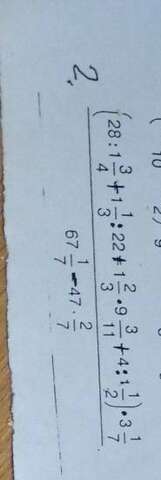 2.
(28:1 3/4 + 1 1/3 : 22 + 1 2/3 • 9 3/11 + 4:1 1/2) • 3 1/7
67 1/7 - 47 · 2/7